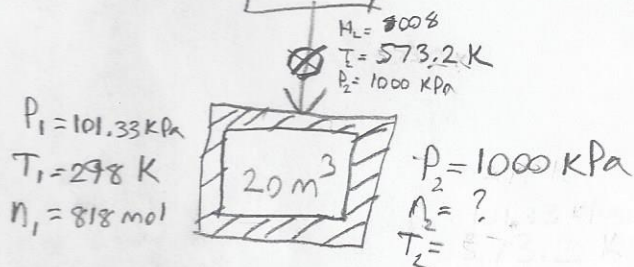 T = 573.2 K
P₂ = 1000 kPa
P₁ = 101.33 kPa
T₁ = 298 K
n₁ = 818 mol
20 m³
P₂ = 1000 kPa
n₂ = ?
T₂ =